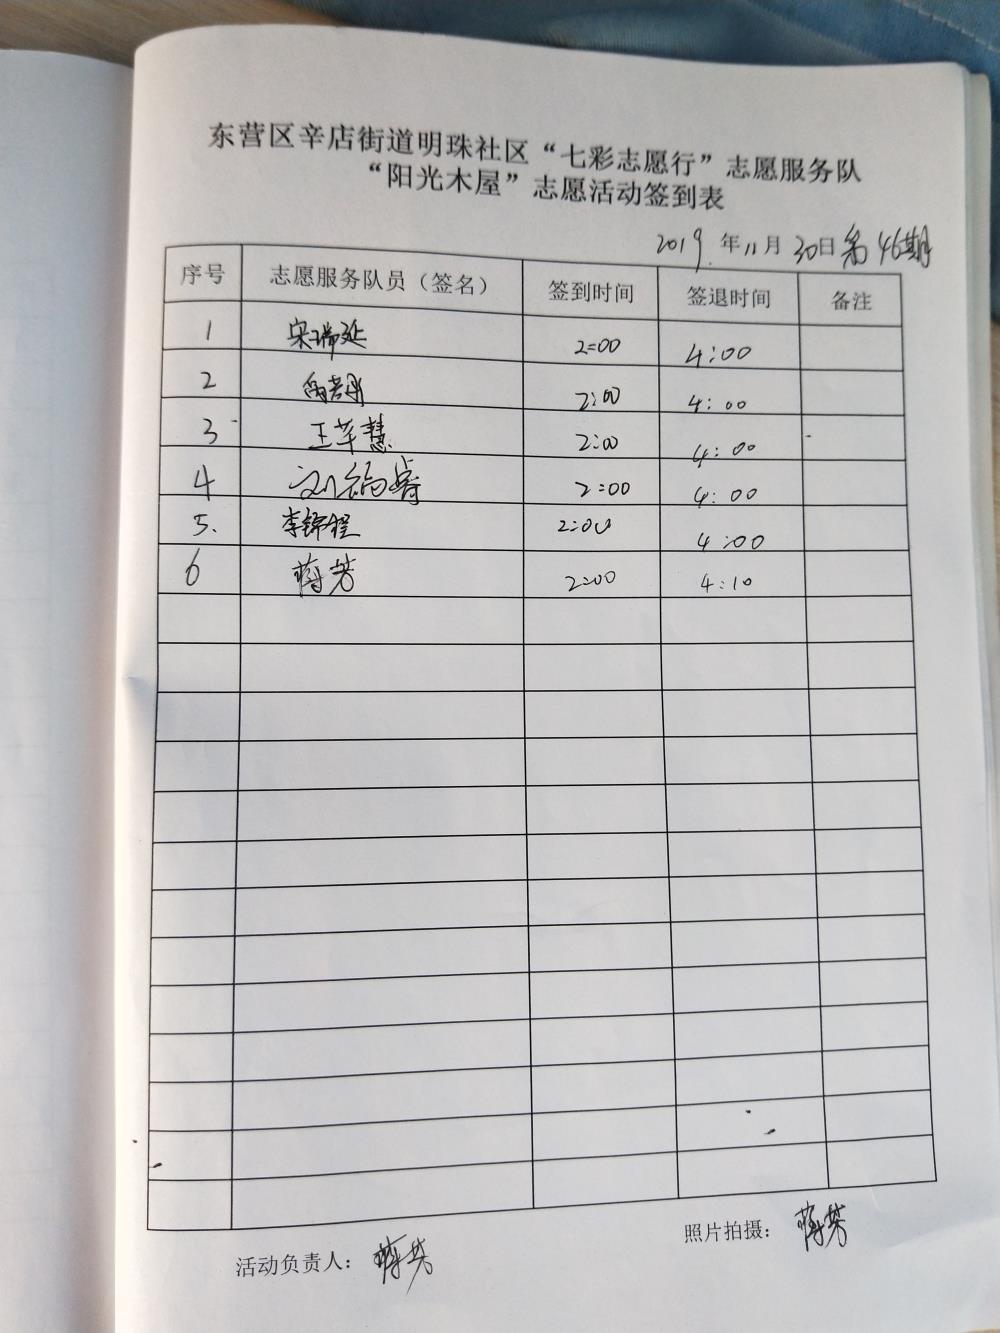 东营区辛店街道明珠社区“七彩志愿行”志愿服务队
“阳光木屋”志愿活动签到表
2019年11月30日第46期
序号 志愿服务队员（签名） 签到时间 签退时间 备注
1 宋瑞延 2:00 4:00
2 2:00 4:00
3 王苹慧 2:00 4:00
4 刘 2:00 4:00
5. 李锦程 2:00 4:00
6 蒋芳 2:00 4:10
活动负责人：蒋芳 照片拍摄：蒋芳